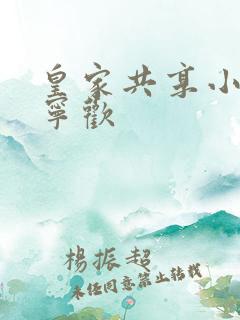 皇家共享小
寧歡
楊振超
未任同意禁止轉載